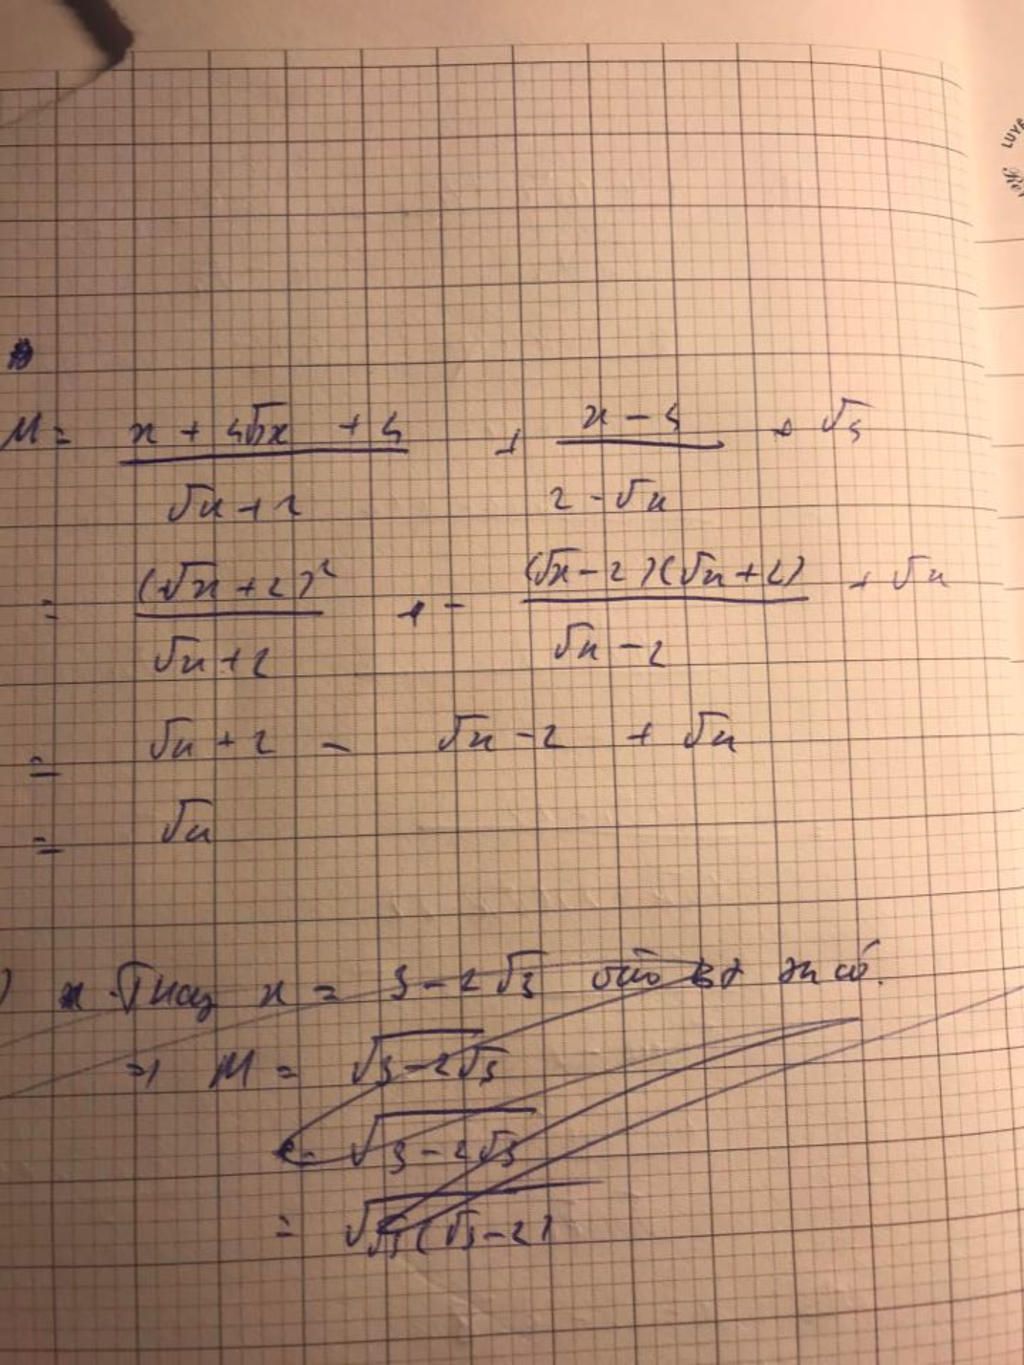 LUYE
M = (x + 4√x + 4)/(√x + 2) + (x - 4)/(2 - √x) + √x
= (√x + 2)²/(√x + 2) + - (√x - 2)(√x + 2)/(√x - 2) + √x
= √x + 2 - √x - 2 + √x
= √x
) Thay x = 3 - 2√3 vào
=> M = √(3 - 2√3)
= √(3 - 2√3)
= √(√3(√3 - 2))